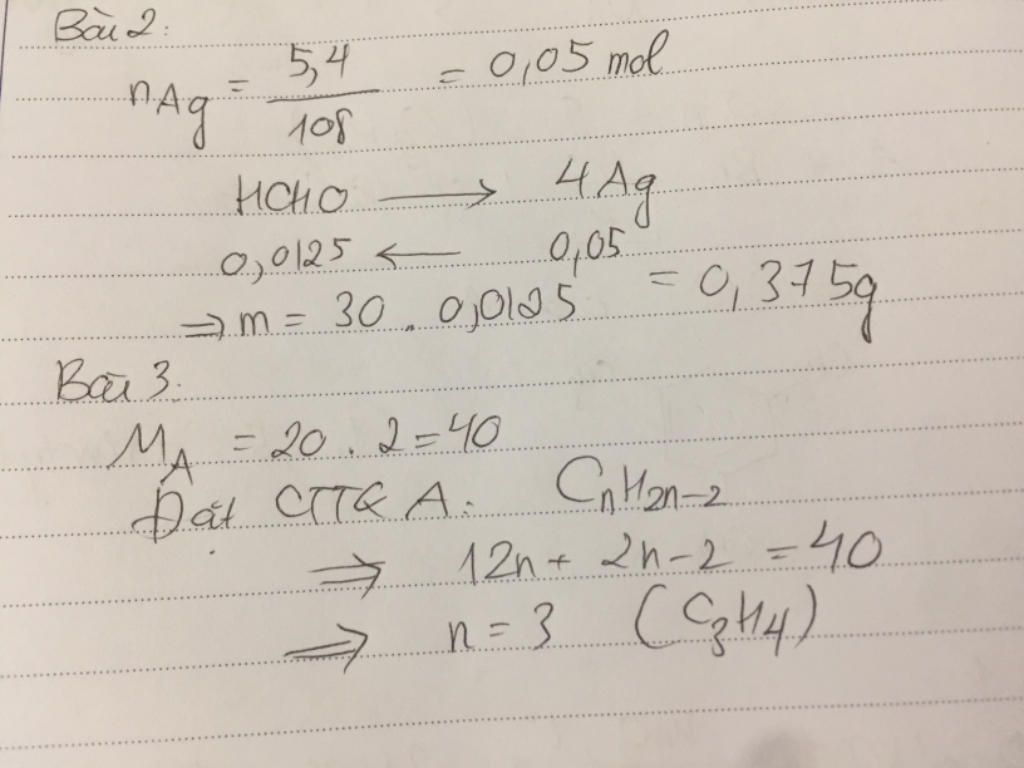 Bài 2:
nAg = 5,4 / 108 = 0,05 mol
HCHO ⟶ 4Ag
0,0125 ⟵ 0,05
⇒ m = 30 . 0,0125 = 0,375g
Bài 3:
MA = 20 . 2 = 40
Đặt CTTQ A: CnH2n-2
⇒ 12n + 2n - 2 = 40
⇒ n = 3 (C3H4)